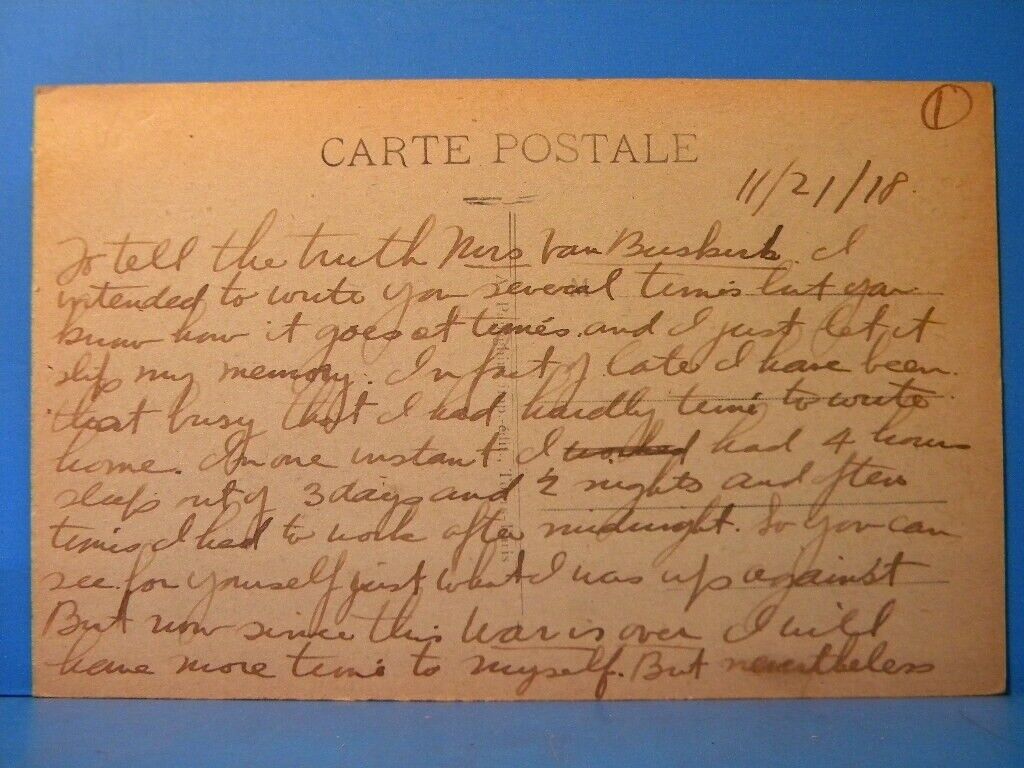 1
CARTE POSTALE
11/21/18.
To tell the truth Mrs Van Buskirk I
intended to write you several times but you
know how it goes at times and I just let it
slip my memory. In fact of late I have been
that busy that I had hardly time to write
home. In one instant I worked had 4 hours
sleep out of 3 days and 2 nights and often
times I had to work after midnight. So you can
see for yourself just what I was up against
But now since this War is over I will
have more time to myself. But nevertheless